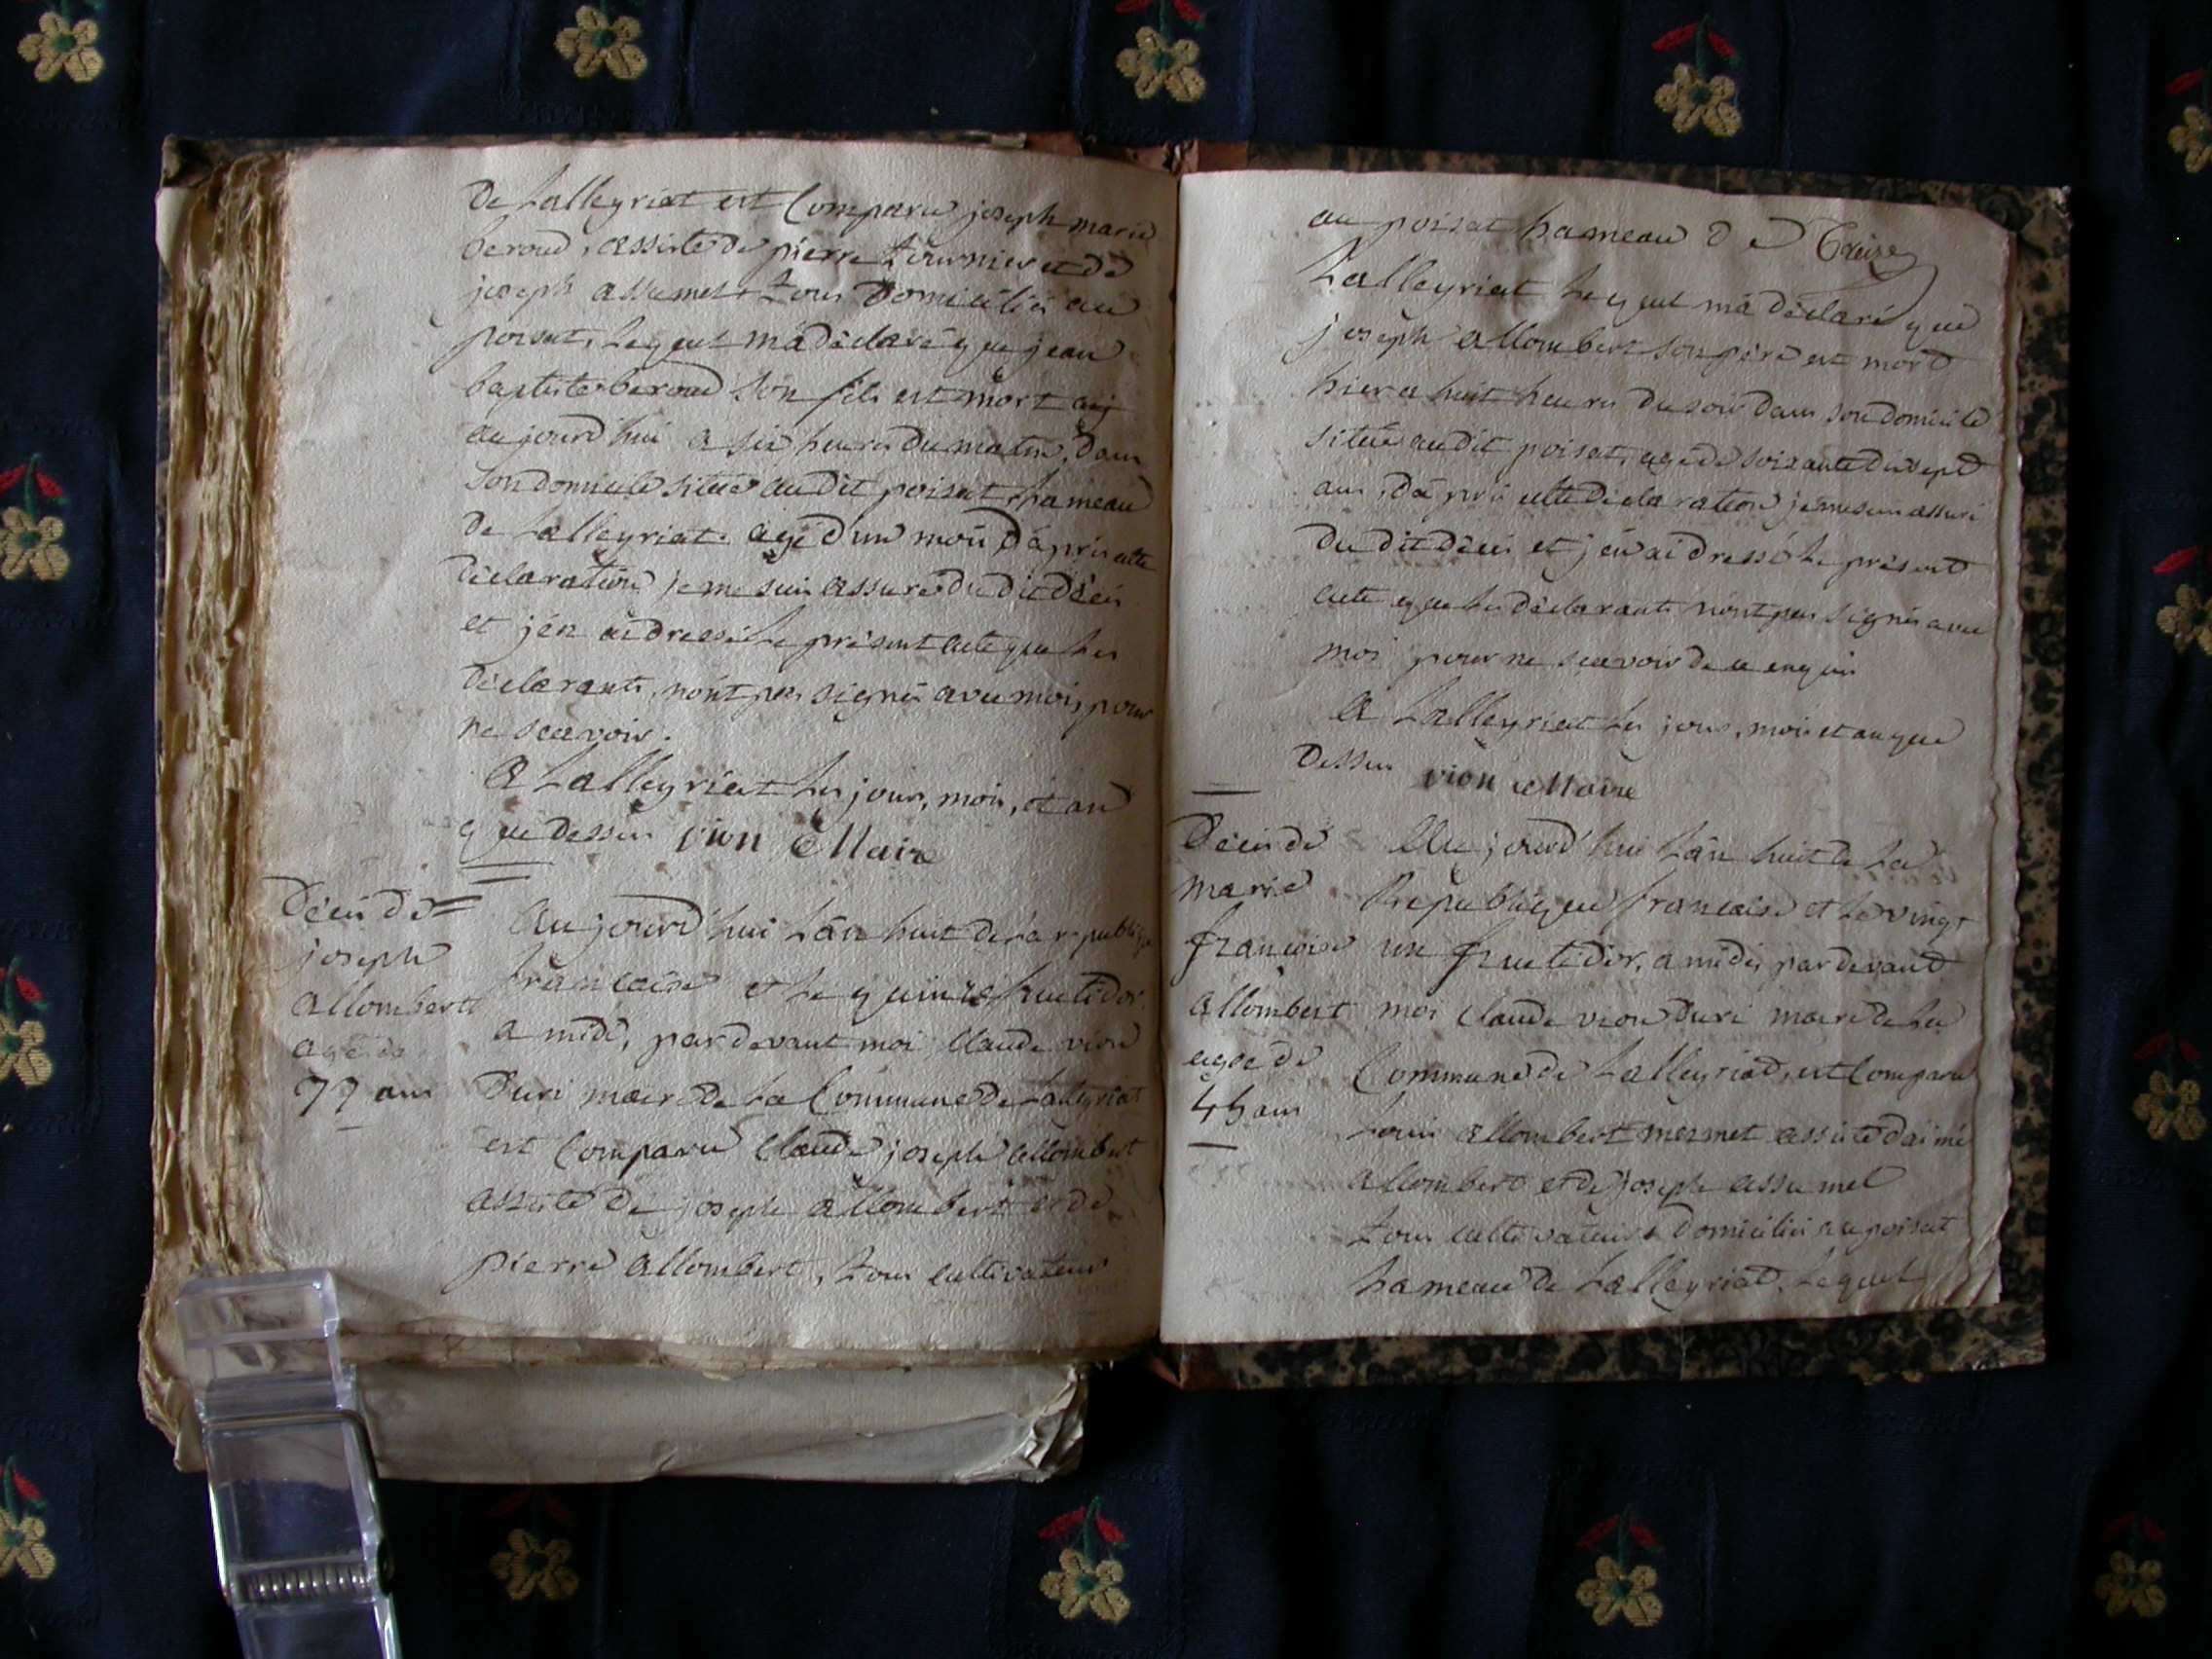 de Lalleyriat est Comparu joseph marie
beroud, assisté de pierre tournier et de
joseph assumel tous domiciliés au
poisat, lequel m'a déclaré que jean
baptiste beroud son fils est mort auj
aujourd'hui a six heures du matin, dans
son domicile situé audit poisat hameau
de Lalleyriat. agé d'un mois d'après cette
déclaration je me suis assuré du dit décès
et j'en ai dressé le présent acte que les
déclarants, n'ont pas signés avec moi, pour
ne scavoir.
A Lalleyriat les jour, mois, et an
que dessus vion Maire
Décès de
joseph
allombert
agé de
77 ans
Aujourd'hui l'an huit de la republique
francaise et le quinze fructidor,
a midi, pardevant moi Claude vion
duri maire de la Commune de Lalleyriat
est Comparu Claude joseph allombert
assisté de joseph allombert et de
pierre allombert, tous cultivateurs
au poisat hameau de Treize
Lalleyriat lequel m'a déclaré que
joseph allombert son père est mort
hier a huit heures du soir dans son domicile
situé audit poisat, agé de soixante dix sept
ans, d'après cette déclaration je me suis assuré
du dit décès et j'en ai dressé le présent
acte que les déclarants n'ont pas signés avec
moi pour ne scavoir de ce enquis
A Lalleyriat les jour, mois et an que
dessus vion Maire
Décès de
marie
francoise
allombert
agée de
45 ans
Aujourd'hui l'an huit de la
Republique francaise et le vingt
un fructidor, a midi, pardevant
moi Claude vion duri maire de la
Commune de Lalleyriat, est Comparu
Louis allombert mermet assisté d'aimé
allombert et de joseph assumel
tous cultivateurs domiciliés au poisat
hameau de Lalleyriat, lequel